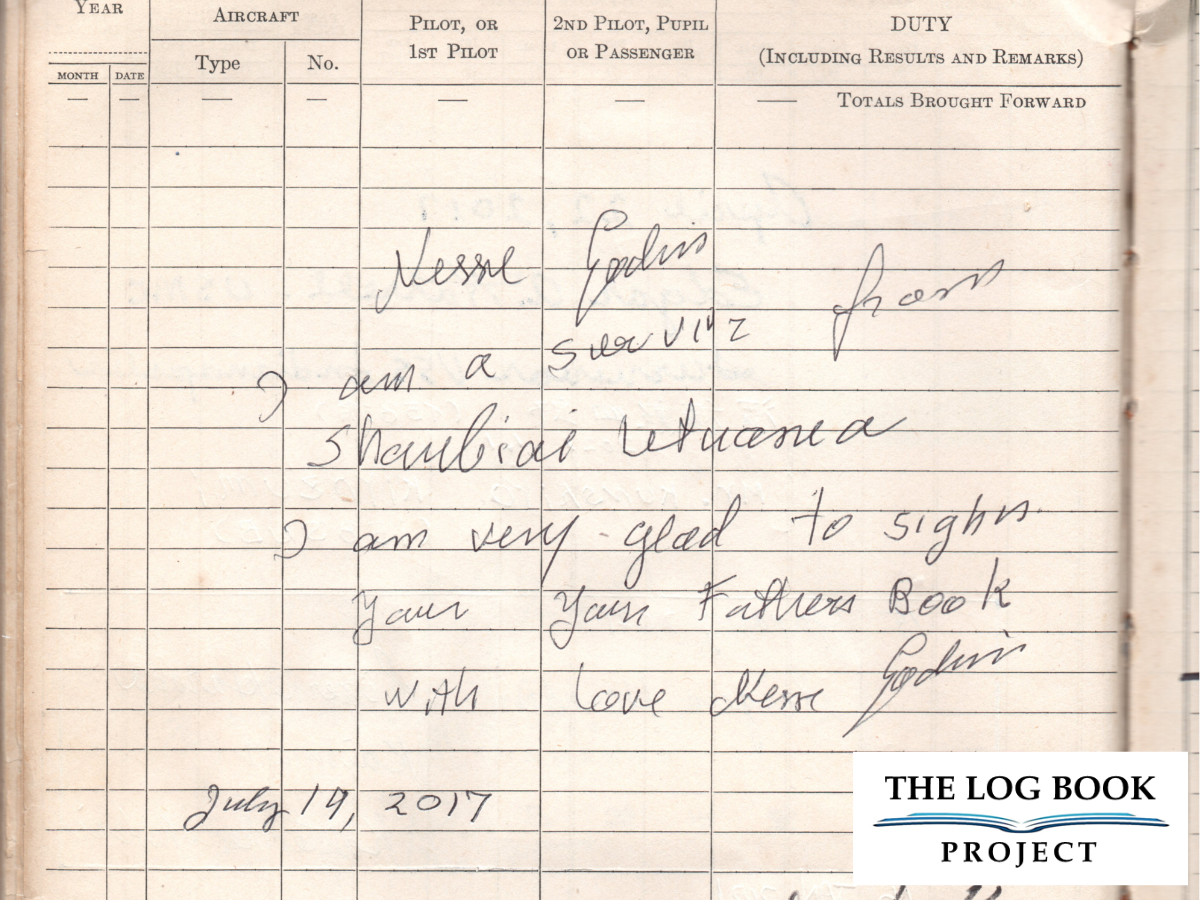 YEAR
AIRCRAFT
PILOT, OR
1ST PILOT
2ND PILOT, PUPIL
OR PASSENGER
DUTY
(INCLUDING RESULTS AND REMARKS)
MONTH DATE
Type No.
— — — — — — — TOTALS BROUGHT FORWARD
Nesse Godin
I am a surviver from
Shaulbiai
I am very glad to sighn
Your Your Fathers Book
with Love Nesse Godin
July 19, 2017
THE LOG BOOK
PROJECT